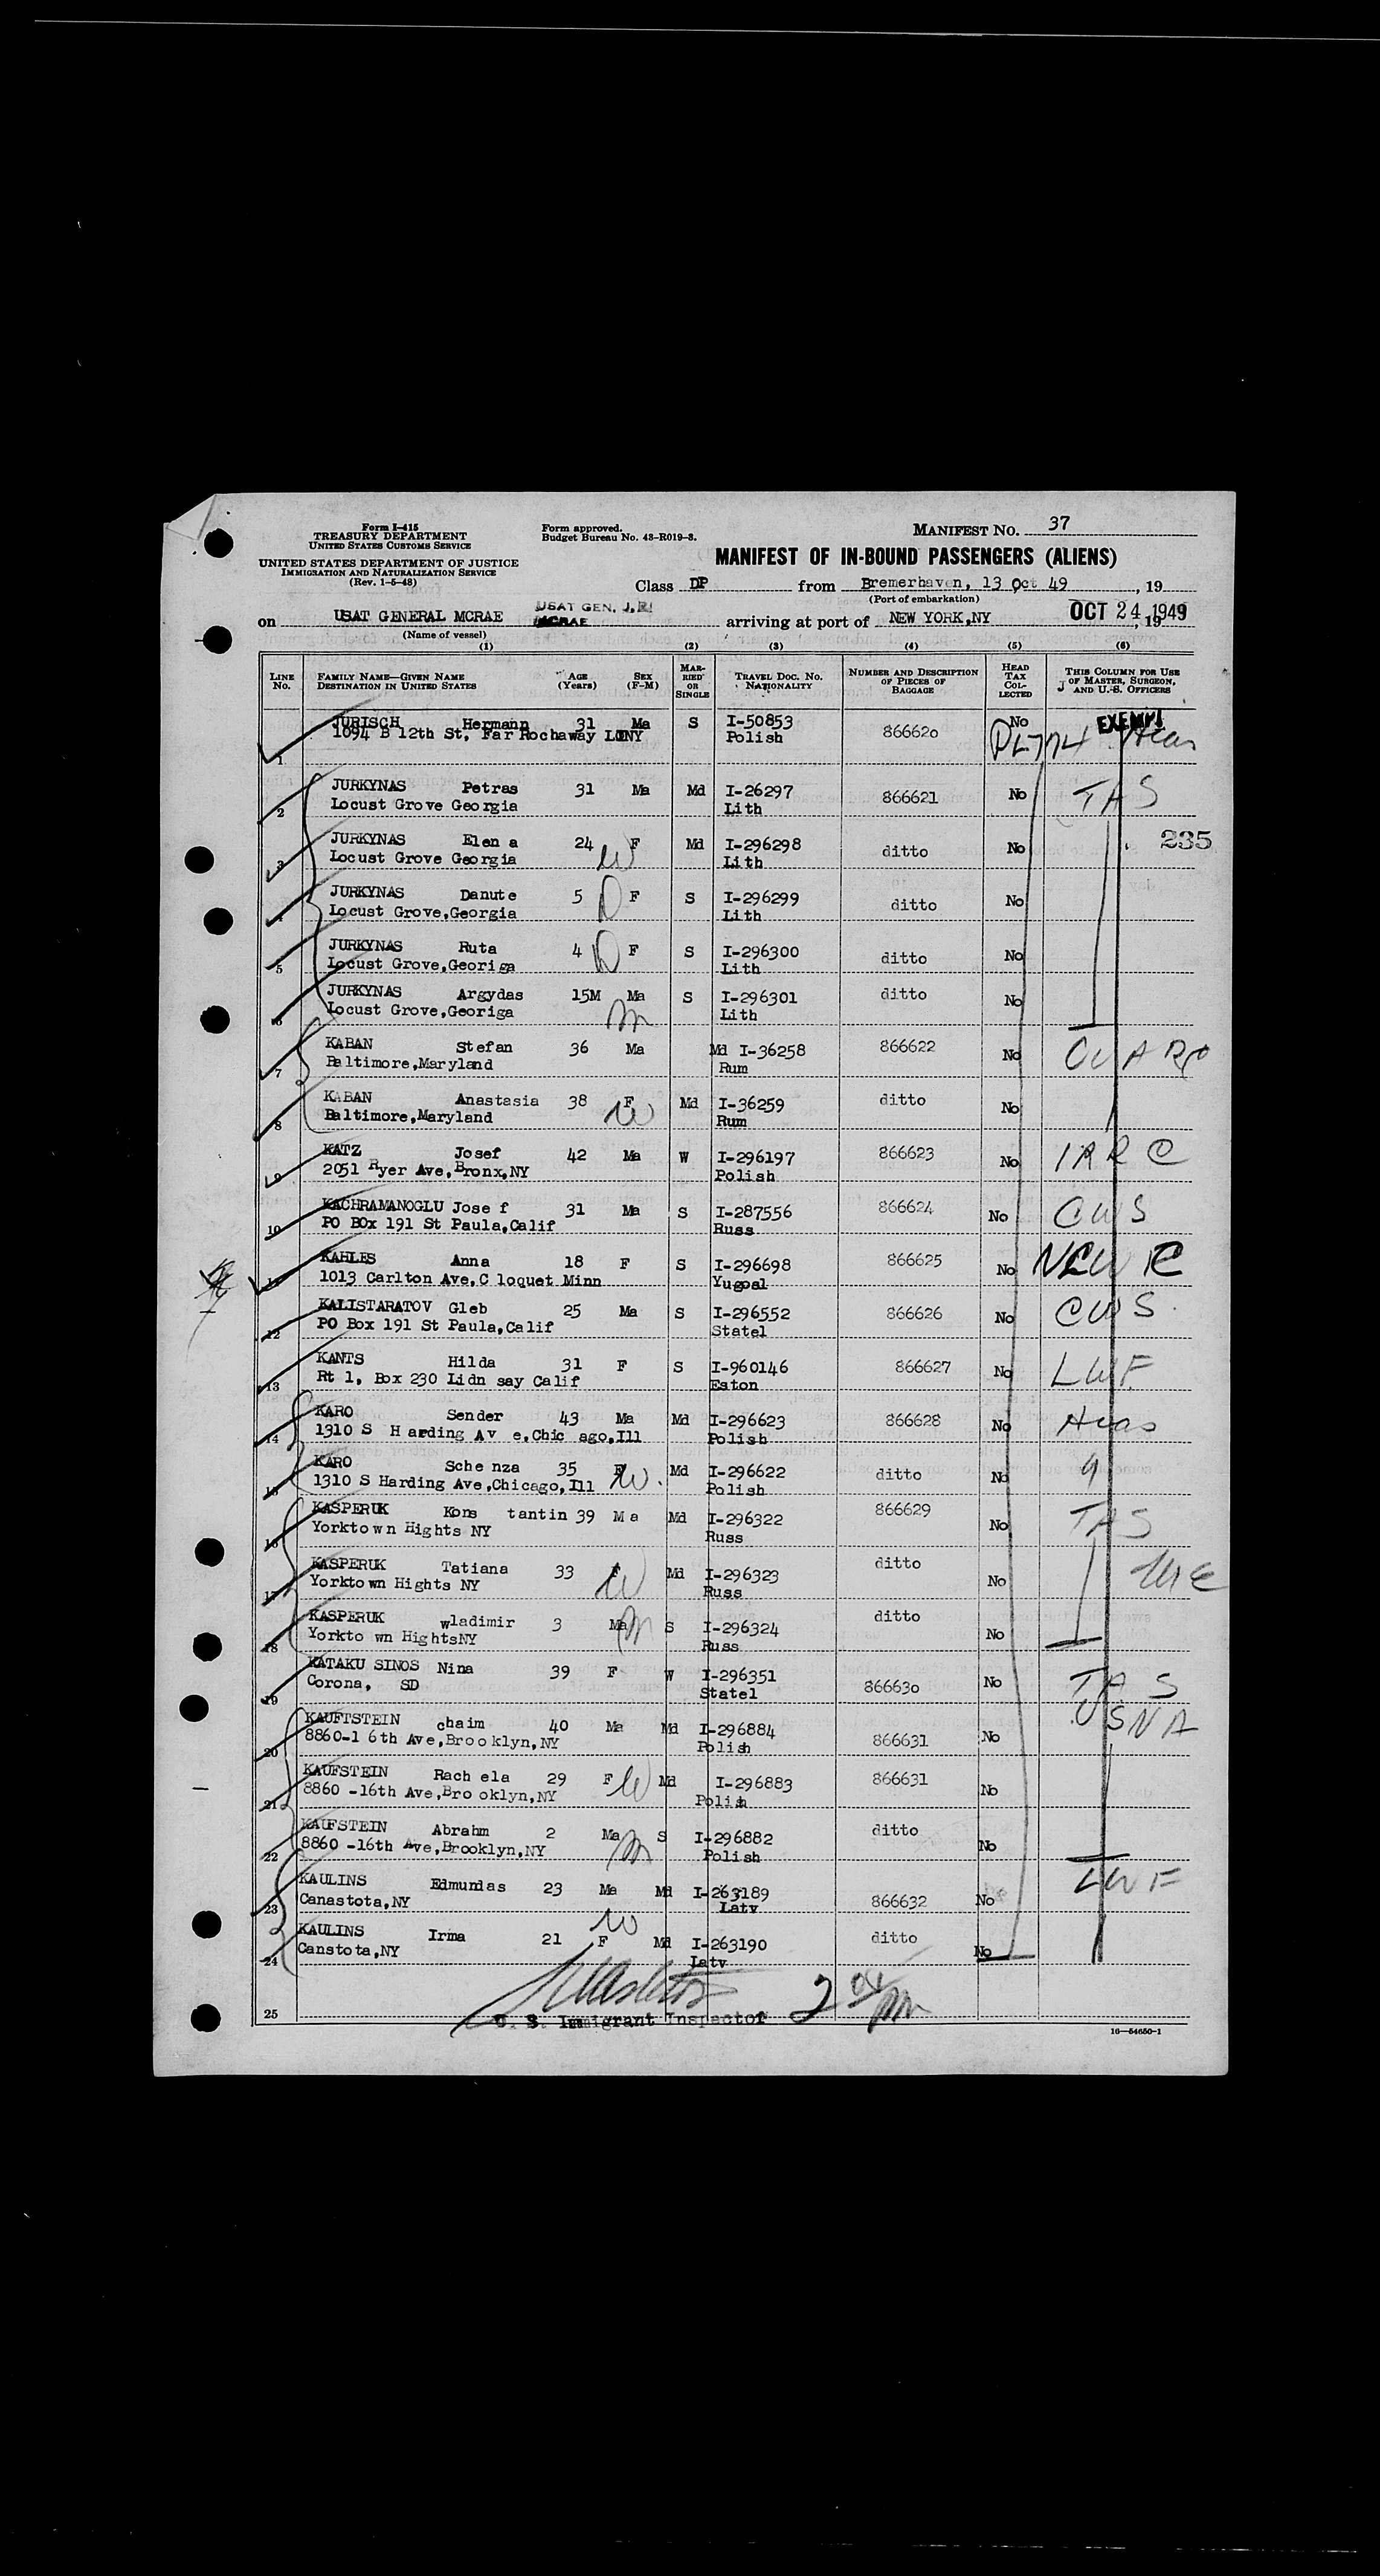 Form I-415
TREASURY DEPARTMENT
UNITED STATES CUSTOMS SERVICE
UNITED STATES DEPARTMENT OF JUSTICE
IMMIGRATION AND NATURALIZATION SERVICE
(Rev. 1-5-48)
Form approved.
Budget Bureau No. 43-R019-3.
MANIFEST NO. 37
MANIFEST OF IN-BOUND PASSENGERS (ALIENS)
Class DP from Bremerhaven, 13 Oct 49, 19
(Port of embarkation)
on USAT GENERAL MCRAE USAT GEN. J.H. MCRAE arriving at port of NEW YORK,NY OCT 24 1949, 19
(Name of vessel)
(1) (2) (3) (4) (5) (6)
LINE NO. FAMILY NAME—GIVEN NAME DESTINATION IN UNITED STATES AGE (Years) SEX (F-M) MARRIED OR SINGLE TRAVEL DOC. NO. NATIONALITY NUMBER AND DESCRIPTION OF PIECES OF BAGGAGE HEAD TAX COLLECTED THIS COLUMN FOR USE OF MASTER, SURGEON, AND U.S. OFFICERS
1 JURISCH Hermann 31 Ma S I-50853 866620 No EXEMPT
1094 B 12th St, Far Rochaway LONY Polish Hias
2 JURKYNAS Petras 31 Ma Md I-26297 866621 No TAS
Locust Grove Georgia Lith
235
3 JURKYNAS Elen a 24 F W Md I-296298 ditto No
Locust Grove Georgia Lith
4 JURKYNAS Danute 5 D F S I-296299 ditto No
Locust Grove,Georgia Lith
5 JURKYNAS Ruta 4 D F S I-296300 ditto No
Locust Grove,Georiga Lith
6 JURKYNAS Argydas 15M Ma S I-296301 ditto No
Locust Grove,Georiga Lith
7 KABAN Stefan 36 Ma Md I-36258 866622 No
Baltimore,Maryland Rum
8 KABAN Anastasia 38 F W Md I-36259 ditto No
Baltimore,Maryland Rum
9 KATZ Josef 42 Ma W I-296197 866623 No IARC
2051 Ryer Ave,Bronx,NY Polish
10 KACHRAMANOGLU Jose f 31 Ma S I-287556 866624 No CWS
PO BOx 191 St Paula,Calif Russ
11 KAHLES Anna 18 F S I-296698 866625 No NCWC
1013 Carlton Ave,C loquet Minn Yugoal
12 KALISTARATOV Gleb 25 Ma S I-296552 866626 No CWS
PO Box 191 St Paula,Calif Statel
13 KANTS Hilda 31 F S I-960146 866627 No LWF
Rt 1, Box 230 Lidn say Calif Eston
14 KARO Sender 43 Ma Md I-296623 866628 No Hias
1310 S H arding Av e,Chic ago,Ill Polish
15 KARO Sche nza 35 F W Md I-296622 ditto No
1310 S Harding Ave,Chicago,Ill Polish
16 KASPERUK Kons tantin 39 M a Md I-296322 866629 No TAS
Yorktown Hights NY Russ
17 KASPERUK Tatiana 33 F W Md I-296323 ditto No
Yorktown Hights NY Russ
18 KASPERUK wladimir 3 Ma S I-296324 ditto No
Yorkto wn HightsNY Russ
19 KATAKU SINOS Nina 39 F W I-296351 866630 No TAS
Corona, SD Statel
20 KAUFTSTEIN chaim 40 Ma Md I-296884 866631 No USNA
8860-1 6th Ave,Brooklyn,NY Polish
21 KAUFSTEIN Rach ela 29 F W Md I-296883 866631 No
8860 -16th Ave,Bro oklyn,NY Polish
22 KAUFSTEIN Abrahm 2 Ma S I-296882 ditto No
8860 -16th Ave,Brooklyn,NY Polish
23 KAULINS Edmundas 23 Ma Md I-263189 866632 No LWF
Canastota,NY Latv
24 KAULINS Irma 21 F W Md I-263190 ditto No
Canstota,NY Latv
25
U. S. Immigrant Inspector
16—54650-1